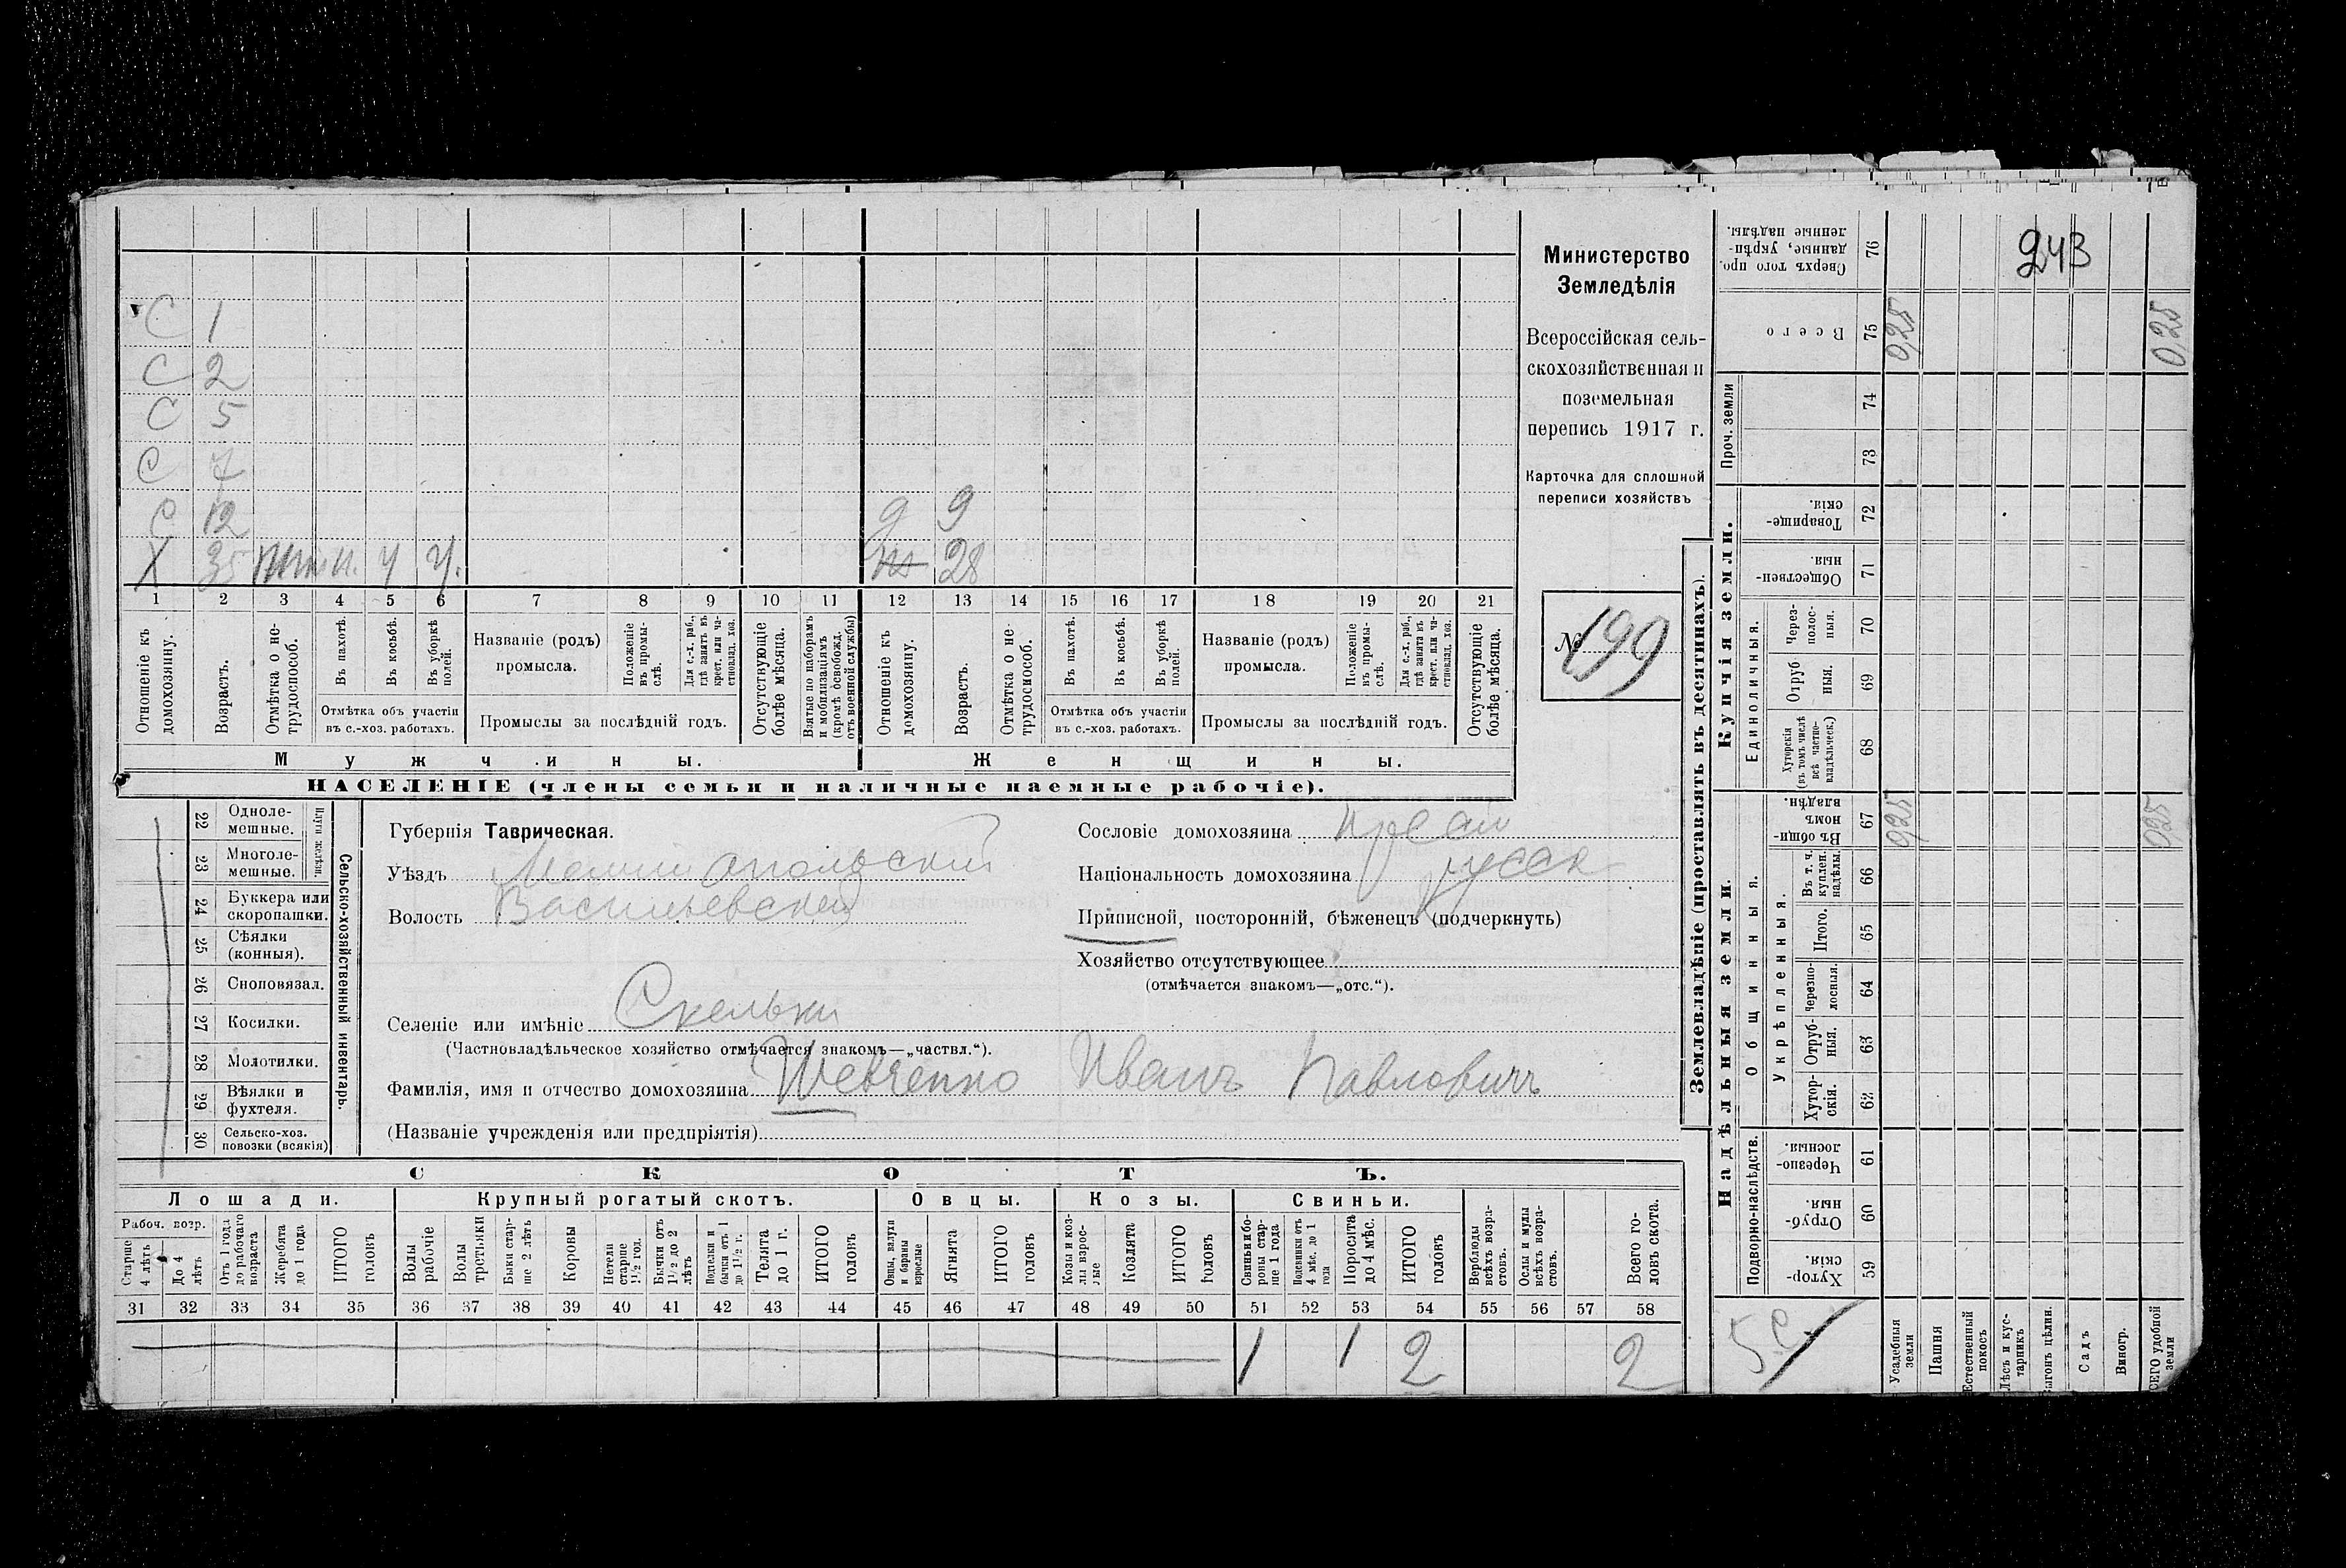 243
С 1
С 2
С 5
С 7
С 12 д 9
Х 35 ж 28
1 2 3 4 5 6 7 8 9 10 11 12 13 14 15 16 17 18 19 20 21
Отношеніе къ домохозяину.
Возрастъ.
Отмѣтка о не-трудоспособ.
Въ пахотѣ.
Въ косьбѣ.
Въ уборкѣ полей.
Отмѣтка объ участіи въ с.-хоз. работахъ.
Названіе (родъ) промысла.
Положеніе въ промы-слѣ.
Для с.-х. раб., гдѣ занятъ въ крест. или ча-стновлад. хоз.
Промыслы за послѣдній годъ.
Отсутствующіе болѣе мѣсяца.
Взятые по наборамъ и мобилизаціямъ (кромѣ освобожд. отъ военной службы)
Отношеніе къ домохозяину.
Возрастъ.
Отмѣтка о не-трудоспособ.
Въ пахотѣ.
Въ косьбѣ.
Въ уборкѣ полей.
Отмѣтка объ участіи въ с.-хоз. работахъ.
Названіе (родъ) промысла.
Положеніе въ промы-слѣ.
Для с.-х. раб., гдѣ занятъ въ крест. или ча-стновлад. хоз.
Промыслы за послѣдній годъ.
Отсутствующіе болѣе мѣсяца.
Мужчины. Женщины.
НАСЕЛЕНІЕ (члены семьи и наличные наемные рабочіе).
Министерство
Земледѣлія
Всероссійская сель-
скохозяйственная и
поземельная
перепись 1917 г.
Карточка для сплошной
переписи хозяйствъ
№ 199
22 Одноле-мешные.
23 Многоле-мешные.
Плуги желѣзн.
24 Буккера или скоропашки.
25 Сѣялки (конныя).
26 Сноповязал.
27 Косилки.
28 Молотилки.
29 Вѣялки и фухтеля.
30 Сельско-хоз. повозки (всякія)
Сельско-хозяйственный инвентарь.
Губернія Таврическая.
Уѣздъ Мелитопольский
Волость Васильевская
Селеніе или имѣніе Скельки
(Частновладѣльческое хозяйство отмѣчается знакомъ—„частвл.“).
Фамилія, имя и отчество домохозяина Шевченко Иванъ Павловичъ
(Названіе учрежденія или предпріятія)
Сословіе домохозяина
Національность домохозяина русск
Приписной, посторонній, бѣженецъ (подчеркнуть)
Хозяйство отсутствующее
(отмѣчается знакомъ—„отс.“).
СКОТЪ.
Лошади. Крупный рогатый скотъ. Овцы. Козы. Свиньи.
Рабоч. возр.
Старше 4 лѣтъ
До 4 лѣтъ
Отъ 1 года до рабочаго возраста
Жеребята до 1 года
ИТОГО головъ
Волы рабочіе
Волы третьяки
Быки стар-ше 2 лѣтъ
Коровы
Нетели старше 1½ год.
Бычки отъ 1½ до 2 лѣтъ
Подтелки и бычки отъ 1 до 1½ г.
Телята до 1 г.
ИТОГО головъ
Овцы, валухи и бараны взрослые
Ягнята
ИТОГО головъ
Козы и коз-лы взрос-лые
Козлята
ИТОГО головъ
Свиньи бо-ровы стар-ше 1 года
Подсвинки отъ 4 мѣс. до 1 года
Поросята до 4 мѣс.
ИТОГО головъ
Верблюды всѣхъ возра-стовъ.
Ослы и мулы всѣхъ возра-стовъ.
Всего го-ловъ скота.
31 32 33 34 35 36 37 38 39 40 41 42 43 44 45 46 47 48 49 50 51 52 53 54 55 56 57 58
1 1 2 2
Землевладѣніе (проставлять въ десятинахъ).
Надѣльныя земли. Купчія земли. Проч. земли
Подворно-наслѣдств.
Общинныя.
Укрѣпленныя.
Единоличныя.
Сверхъ того про-данные, укрѣп-ленные надѣлы. 76
Всего 75 0,25 0,25
74
73
Товарище-скія. 72
Обществен-ныя. 71
Через-полос-ныя. 70
Отруб-ныя. 69
Хуторскія (въ томъ числѣ всѣ частно-владѣльческ.) 68
Въ общи-номъ владѣн. 67 0,25 0,25
Въ т. ч. куплен. надѣлы. 66
Итого. 65
Черезпо-лосныя. 64
Отруб-ныя. 63
Хутор-скія. 62
Черезпо-лосныя. 61
Отруб-ныя. 60
Хутор-скія. 59
Усадебныя земли
Пашня
Естественный покосъ
Лѣсъ и кус-тарникъ
Выгонъ цѣлин.
Садъ
Виногр.
ВСЕГО удобной земли